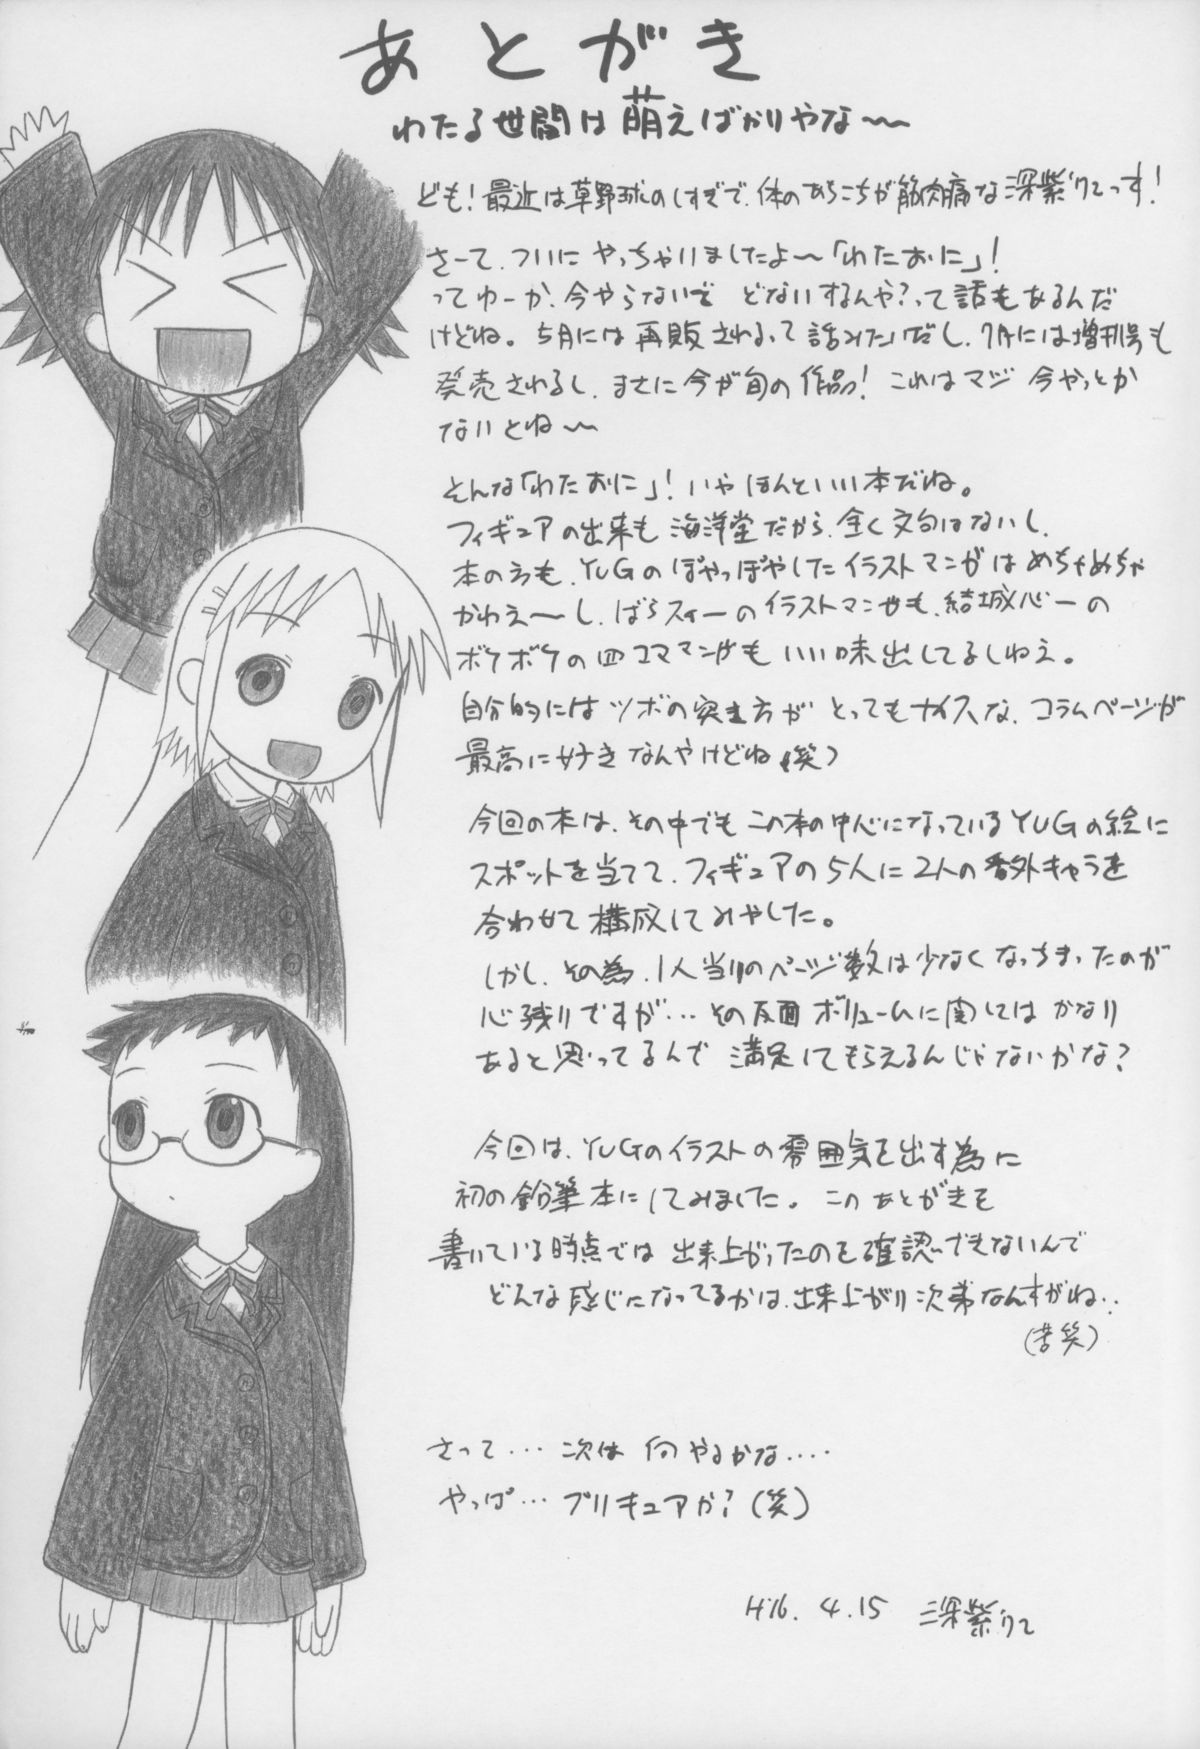 あとがき
わたる世間は萌えばかりやな〜
ども!最近は草野球のしすぎで、体のあちこちが筋肉痛な深紫クニっす!
さーて、ついにやっちゃいましたよ〜「わたおに」!
ってゆーか、今やらないでどないするんや?って話もあるんだ
けどね。5月には再販されるって話みたいだし、7月には増刊号も
発売されるし、まさに今が旬の作品!これはマジ今やっとか
ないとね〜
そんな「わたおに」!いやほんといい本だね。
フィギュアの出来も海洋堂だから、全く文句はないし、
本の方も、YUGのぽやっぽやしたイラストマンガはめちゃめちゃ
かわえ〜し、ばらスィーのイラストマンガも、結城心一の
ボケボケの四コママンガもいい味出してるしねえ。
自分的にはツボの突き方がとってもナイスな、コラムページが
最高に好きなんやけどね(笑)
今回の本は、その中でもこの本の中心になっているYUGの絵に
スポットを当てて、フィギュアの5人に2人の番外キャラを
合わせて構成してみやした。
しかし、その為、1人当りのページ数は少なくなっちまったのが
心残りですが…その反面ボリュームに関してはかなり
あると思ってるんで満足してもらえるんじゃないかな?
今回は、YUGのイラストの雰囲気を出す為に
初の鉛筆本にしてみました。このあとがきを
書いている時点では出来上がったのを確認できないんで
どんな感じになってるかは、出来上がり次第なんすがね‥
(苦笑)
さって…次は何やるかな‥‥
やっぱ…プリキュアか?(笑)
H16.4.15 深紫